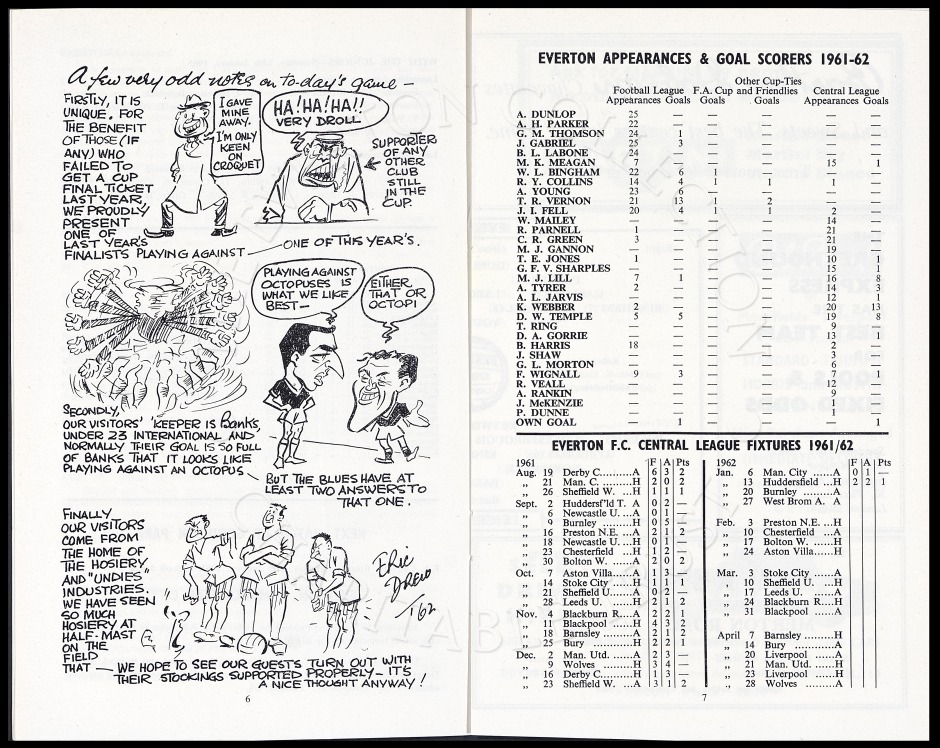 A few very odd notes on to-day's game —
FIRSTLY, IT IS
UNIQUE. FOR
THE BENEFIT
OF THOSE (IF
ANY) WHO
FAILED TO
GET A CUP
FINAL TICKET
LAST YEAR,
WE PROUDLY
PRESENT
ONE OF
LAST YEAR'S
FINALISTS PLAYING AGAINST — ONE OF THIS YEAR'S.
I GAVE
MINE
AWAY.
I'M ONLY
KEEN
ON
CROQUET
HA! HA! HA!!
VERY DROLL
SUPPORTER
OF ANY
OTHER
CLUB
STILL
IN THE
CUP.
PLAYING AGAINST
OCTOPUSES IS
WHAT WE LIKE
BEST —
EITHER
THAT OR
OCTOPI
SECONDLY,
OUR VISITORS' 'KEEPER IS Banks,
UNDER 23 INTERNATIONAL AND
NORMALLY THEIR GOAL IS SO FULL
OF BANKS THAT IT LOOKS LIKE
PLAYING AGAINST AN OCTOPUS.
BUT THE BLUES HAVE AT
LEAST TWO ANSWERS TO
THAT ONE.
FINALLY
OUR VISITORS
COME FROM
THE HOME OF
THE HOSIERY,
AND "UNDIES"
INDUSTRIES.
WE HAVE SEEN
SO MUCH
HOSIERY AT
HALF-MAST
ON THE
FIELD
THAT — WE HOPE TO SEE OUR GUESTS TURN OUT WITH
THEIR STOCKINGS SUPPORTED PROPERLY — IT'S
A NICE THOUGHT ANYWAY!
! ?
ERIC
DREW
1/62
6
EVERTON APPEARANCES & GOAL SCORERS 1961-62
Other Cup-Ties
Football League F.A. Cup and Friendlies Central League
Appearances Goals Goals Goals Appearances Goals
A. DUNLOP 25 — — — — —
A. H. PARKER 22 — — — — —
G. M. THOMSON 24 1 — — — —
J. GABRIEL 25 3 — — — —
B. L. LABONE 24 — — — — —
M. K. MEAGAN 7 — — — 15 1
W. L. BINGHAM 22 6 1 — — —
R. Y. COLLINS 14 4 1 1 1 —
A. YOUNG 23 6 — — — —
T. R. VERNON 21 13 1 2 — —
J. I. FELL 20 4 1 1 2 —
W. MAILEY — — — — 14 —
R. PARNELL 1 — — — 21 —
C. R. GREEN 3 — — — 21 —
M. J. GANNON — — — — 19 —
T. E. JONES 1 — — — 10 1
G. F. V. SHARPLES — — — — 15 1
M. J. LILL 7 1 — — 16 8
A. TYRER 2 — — — 14 3
A. L. JARVIS — — — — 12 1
K. WEBBER 2 — — — 20 13
D. W. TEMPLE 5 5 — — 19 8
T. RING — — — — 9 —
D. A. GORRIE — — — — 13 1
B. HARRIS 18 — — — 2 —
J. SHAW — — — — 3 —
G. L. MORTON — — — — 6 —
F. WIGNALL 9 3 — — 7 1
R. VEALL — — — — 12 —
A. RANKIN — — — — 9 —
J. McKENZIE — — — — 1 —
P. DUNNE — — — — 1 —
OWN GOAL 1 — — — 1
EVERTON F.C. CENTRAL LEAGUE FIXTURES 1961/62
1961 F A Pts
Aug. 19 Derby C.........A 6 3 2
,, 21 Man. C. .......H 2 0 2
,, 26 Sheffield W. ...H 1 1 1
Sept. 2 Huddersf'ld T. A 0 2 —
,, 6 Newcastle U....A 0 1 —
,, 9 Burnley .........H 0 5 —
,, 16 Preston N.E. ...A 2 1 2
,, 18 Newcastle U....H 0 1 —
,, 23 Chesterfield ...H 1 2 —
,, 30 Bolton W. ......A 2 0 2
Oct. 7 Aston Villa......A 1 3 —
,, 14 Stoke City ......H 1 1 1
,, 21 Sheffield U.......A 0 2 —
,, 28 Leeds U. .........H 2 1 2
Nov. 4 Blackburn R....A 2 2 1
,, 11 Blackpool ......H 4 3 2
,, 18 Barnsley .........A 2 1 2
,, 25 Bury ............H 2 2 1
Dec. 2 Man. Utd. ......A 2 3 —
,, 9 Wolves .........H 3 4 —
,, 16 Derby C..........H 1 3 —
,, 23 Sheffield W. ...A 3 1 2
1962 F A Pts
Jan. 6 Man. City ......A 0 1 —
,, 13 Huddersfield ...H 2 2 1
,, 20 Burnley .........A
,, 27 West Brom A. A
Feb. 3 Preston N.E. ...H
,, 10 Chesterfield ...A
,, 17 Bolton W. ......H
,, 24 Aston Villa......H
Mar. 3 Stoke City ......A
,, 10 Sheffield U. ...H
,, 17 Leeds U. ......A
,, 24 Blackburn R....H
,, 31 Blackpool ......A
April 7 Barnsley .........H
,, 14 Bury ............A
,, 20 Liverpool ......A
,, 21 Man. Utd. ......H
,, 23 Liverpool ......H
,, 28 Wolves .........A
7